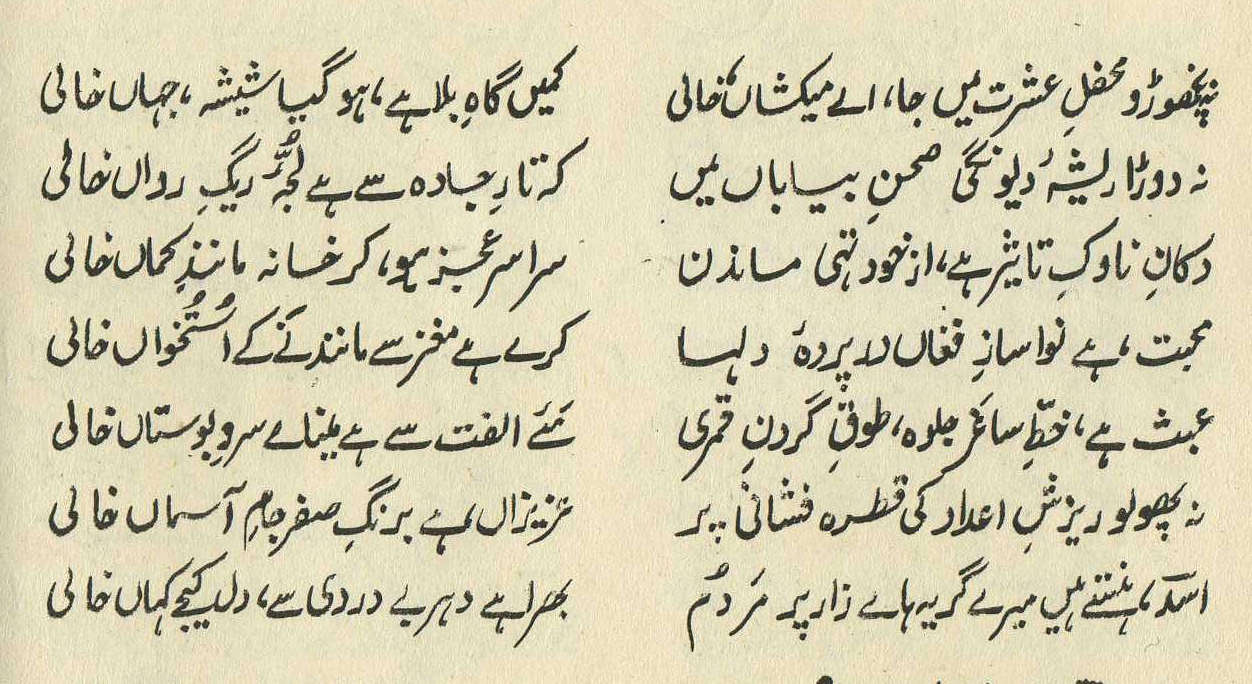 نہ چھوڑو محفلِ عشرت میں جا، اے میکشاں، خالی
کمیں گاہِ بلا ہے، ہو گیا شیشہ، جہاں خالی
نہ دوڑا ریشۂ دیونگی صحنِ بیاباں میں
کہ تارِ جادہ سے ہے لُجّۂ ریگِ رواں خالی
دکانِ ناوکِ تاثیر ہے، از خود تہی ماندن
سراسر عجز ہو، کر خانہ مانندِ کماں خالی
محبت، ہے نوا سازِ فغاں در پردۂ دلہا
کرے ہے مغز سے مانندِ نَے کے اُستُخواں خالی
عبث ہے، خطِّ ساغر جلوہ، طوقِ گردنِ قمری
مَئے الفت سے ہے مینائے سروِ بوستاں خالی
نہ پھولو ریزشِ اعداد کی قطرہ فشانی پر
عزیزاں، ہے برنگِ صفر جامِ آسماں خالی
اسدؔ، ہنستے ہیں میرے گریہ ہائے زار پر مَردُم
بھرا ہے دہر بے دردی سے، دل کیجے کہاں خالی